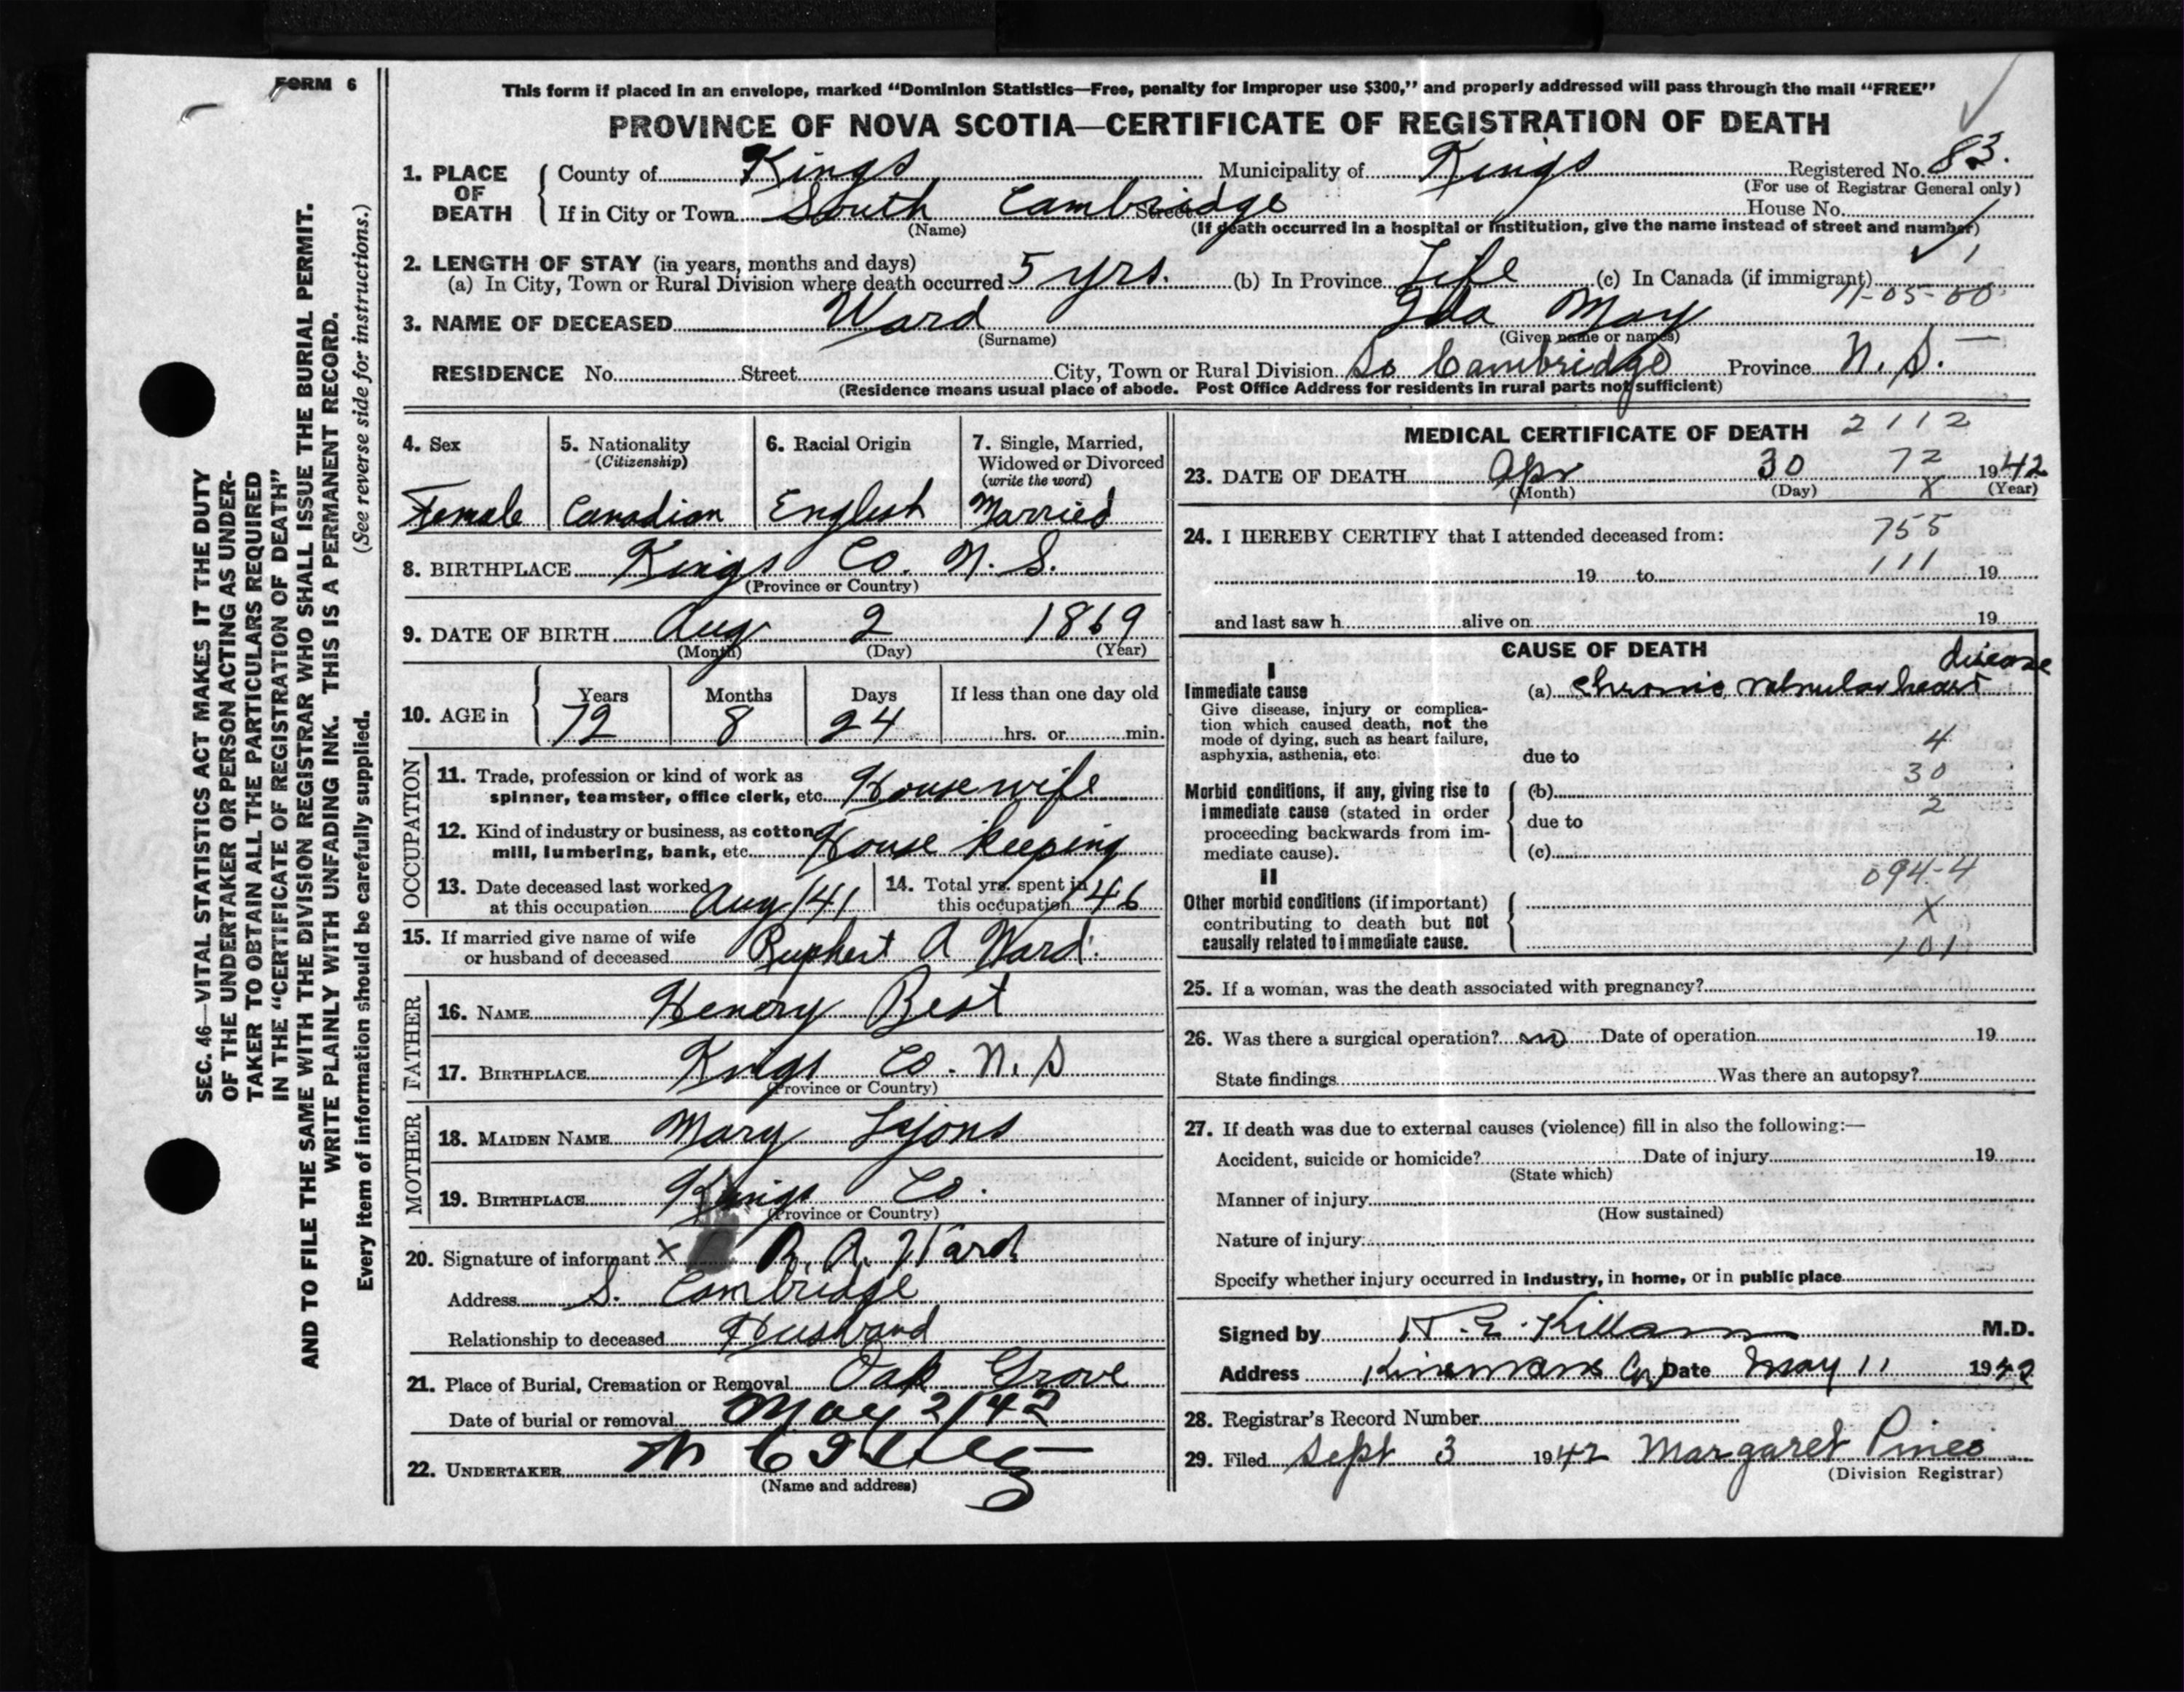 FORM 6
This form if placed in an envelope, marked “Dominion Statistics—Free, penalty for improper use $300,” and properly addressed will pass through the mail “FREE”
PROVINCE OF NOVA SCOTIA—CERTIFICATE OF REGISTRATION OF DEATH
1. PLACE OF DEATH
County of Kings Municipality of Kings Registered No. 83.
(For use of Registrar General only)
If in City or Town South Cambridge Street House No.
(Name) (If death occurred in a hospital or institution, give the name instead of street and number)
2. LENGTH OF STAY (in years, months and days)
(a) In City, Town or Rural Division where death occurred 5 yrs. (b) In Province Life (c) In Canada (if immigrant)
11-05-00
3. NAME OF DECEASED Ward Ida May
(Surname) (Given name or names)
RESIDENCE No. Street City, Town or Rural Division So Cambridge Province N. S.
(Residence means usual place of abode. Post Office Address for residents in rural parts not sufficient)
4. Sex
Female
5. Nationality
(Citizenship)
Canadian
6. Racial Origin
English
7. Single, Married,
Widowed or Divorced
(write the word)
Married
8. BIRTHPLACE Kings Co. N. S.
(Province or Country)
9. DATE OF BIRTH Aug 2 1869
(Month) (Day) (Year)
10. AGE in
Years Months Days If less than one day old
72 8 24 hrs. or min.
OCCUPATION
11. Trade, profession or kind of work as
spinner, teamster, office clerk, etc. Housewife
12. Kind of industry or business, as cotton
mill, lumbering, bank, etc. House keeping
13. Date deceased last worked
at this occupation Aug/41
14. Total yrs. spent in
this occupation 46
15. If married give name of wife
or husband of deceased Ruphert A Ward.
FATHER
16. NAME Henory Best
17. BIRTHPLACE Kings Co. N. S
(Province or Country)
MOTHER
18. MAIDEN NAME Mary Lyons
19. BIRTHPLACE Kings Co.
(Province or Country)
20. Signature of informant x R. A. Ward
Address S. Cambridge
Relationship to deceased Husband
21. Place of Burial, Cremation or Removal Oak Grove
Date of burial or removal May 2/42
22. UNDERTAKER
(Name and address)
MEDICAL CERTIFICATE OF DEATH 2112
23. DATE OF DEATH Apr 30 72 1942
(Month) (Day) X (Year)
24. I HEREBY CERTIFY that I attended deceased from: 755
19 to 111 19
and last saw h alive on 19
CAUSE OF DEATH
I
Immediate cause
Give disease, injury or complica-
tion which caused death, not the
mode of dying, such as heart failure,
asphyxia, asthenia, etc.
(a) Chronic valvular heart disease
due to 4
30
Morbid conditions, if any, giving rise to
immediate cause (stated in order
proceeding backwards from im-
mediate cause).
(b)
due to 2
(c)
094-4
II
Other morbid conditions (if important)
contributing to death but not
causally related to immediate cause.
X
101
25. If a woman, was the death associated with pregnancy?
26. Was there a surgical operation? no Date of operation 19
State findings Was there an autopsy?
27. If death was due to external causes (violence) fill in also the following:—
Accident, suicide or homicide? Date of injury 19
(State which)
Manner of injury
(How sustained)
Nature of injury
Specify whether injury occurred in industry, in home, or in public place
Signed by Killam M.D.
Address Kinsmans Date May 11 1942
28. Registrar's Record Number
29. Filed Sept 3 1942 Margaret Pineo
(Division Registrar)
SEC. 46—VITAL STATISTICS ACT MAKES IT THE DUTY
OF THE UNDERTAKER OR PERSON ACTING AS UNDER-
TAKER TO OBTAIN ALL THE PARTICULARS REQUIRED
IN THE “CERTIFICATE OF REGISTRATION OF DEATH”
AND TO FILE THE SAME WITH THE DIVISION REGISTRAR WHO SHALL ISSUE THE BURIAL PERMIT.
WRITE PLAINLY WITH UNFADING INK. THIS IS A PERMANENT RECORD.
Every item of information should be carefully supplied. (See reverse side for instructions.)